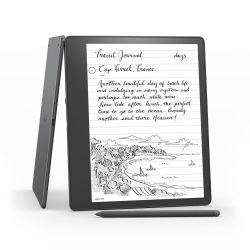 Travel Journal days
Cap Ferret, France
Another beautiful day of beach life
and indulging in many oysters and
perhaps too much white wine.
Low tide after lunch, the perfect
time to go to the ocean. Simply
another day here Heaven!